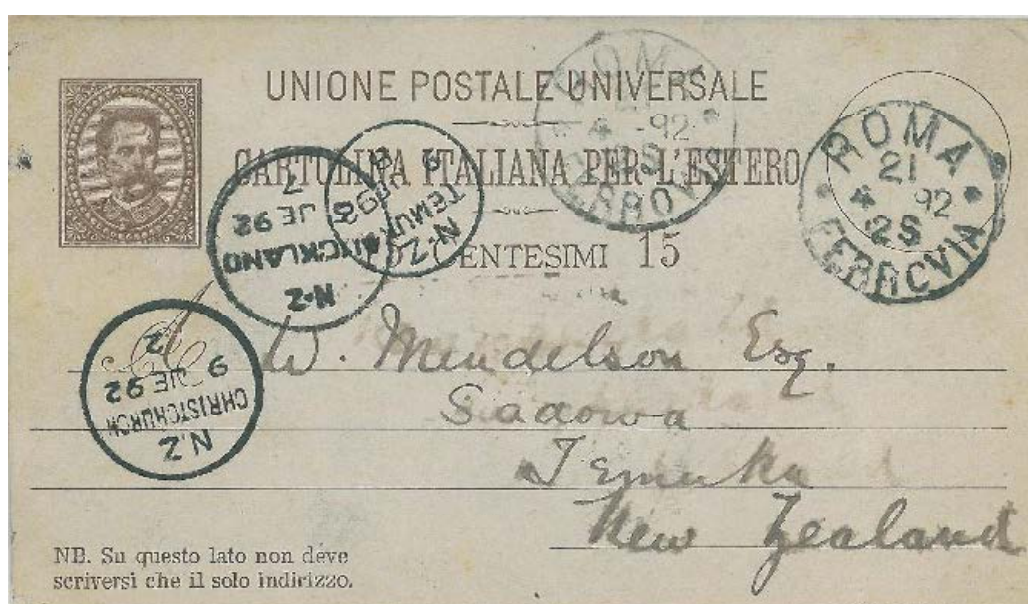 UNIONE POSTALE UNIVERSALE
CARTOLINA ITALIANA PER L'ESTERO
15 CENTESIMI 15
ROMA
4 -92
2S
FERROVIA
ROMA
21
4 92
2S
FERROVIA
N.Z
TEMUKA
9
JE 92
N·Z
AUCKLAND
JE 92
7
N.Z
CHRISTCHURCH
9
JE 92
2
A
W. Mendelson Esq.
Sadowa
Temuka
New Zealand
NB. Su questo lato non deve
scriversi che il solo indirizzo.